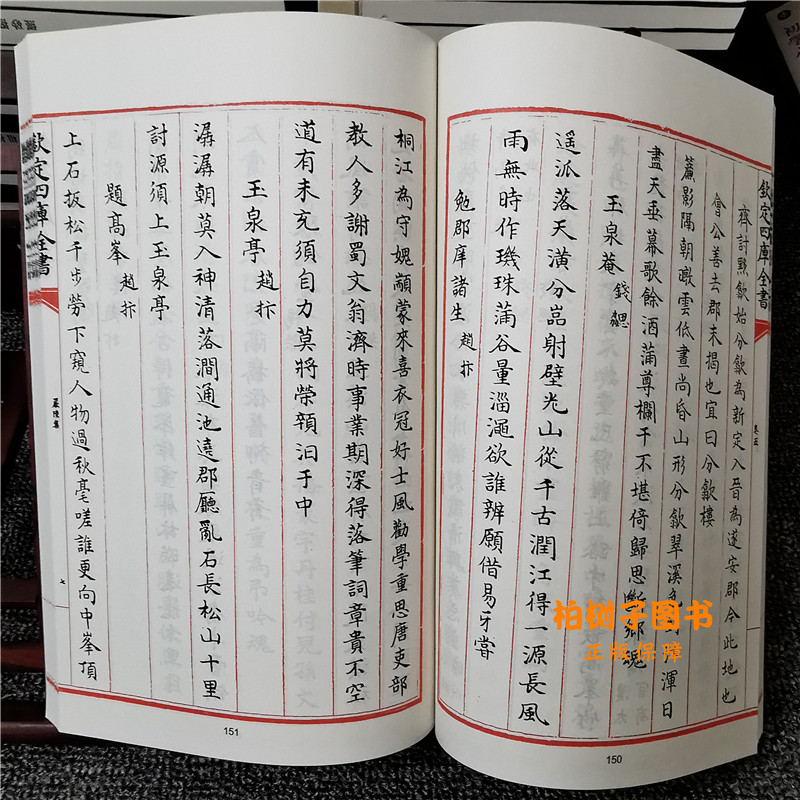 欽定四庫全書
卷五
齊討黟歙始分歙為新定入晉為遂安郡今此地也
會公善去郡未揭也宜曰分歙樓
簾影隔朝暾雲低晝尚昏山形分歙翠溪
渾日
盡天垂幕歌餘酒蒲尊欄干不堪倚歸思斷鄉魂
玉泉菴 錢勰
遥派落天潢分嵓射壁光山從千古潤江得一源長風
雨無時作璣珠蒲谷量淄澠欲誰辨願借易牙嘗
勉郡庠諸生 趙抃
150
桐江為守媿顓蒙來喜衣冠好士風勸學重思唐吏部
教人多謝蜀文翁濟時事業期深得落筆詞章貴不空
道有未充須自力莫將榮頞汩于中
玉泉亭 趙抃
潺潺朝莫入神清落澗通池遶郡廳亂石長松山十里
討源須上玉泉亭
題高峯 趙抃
上石扳松千步勞下窺人物過秋毫嗟誰更向中峯頂
欽定四庫全書
嚴陵集
七
151
柏树子图书
正版保障